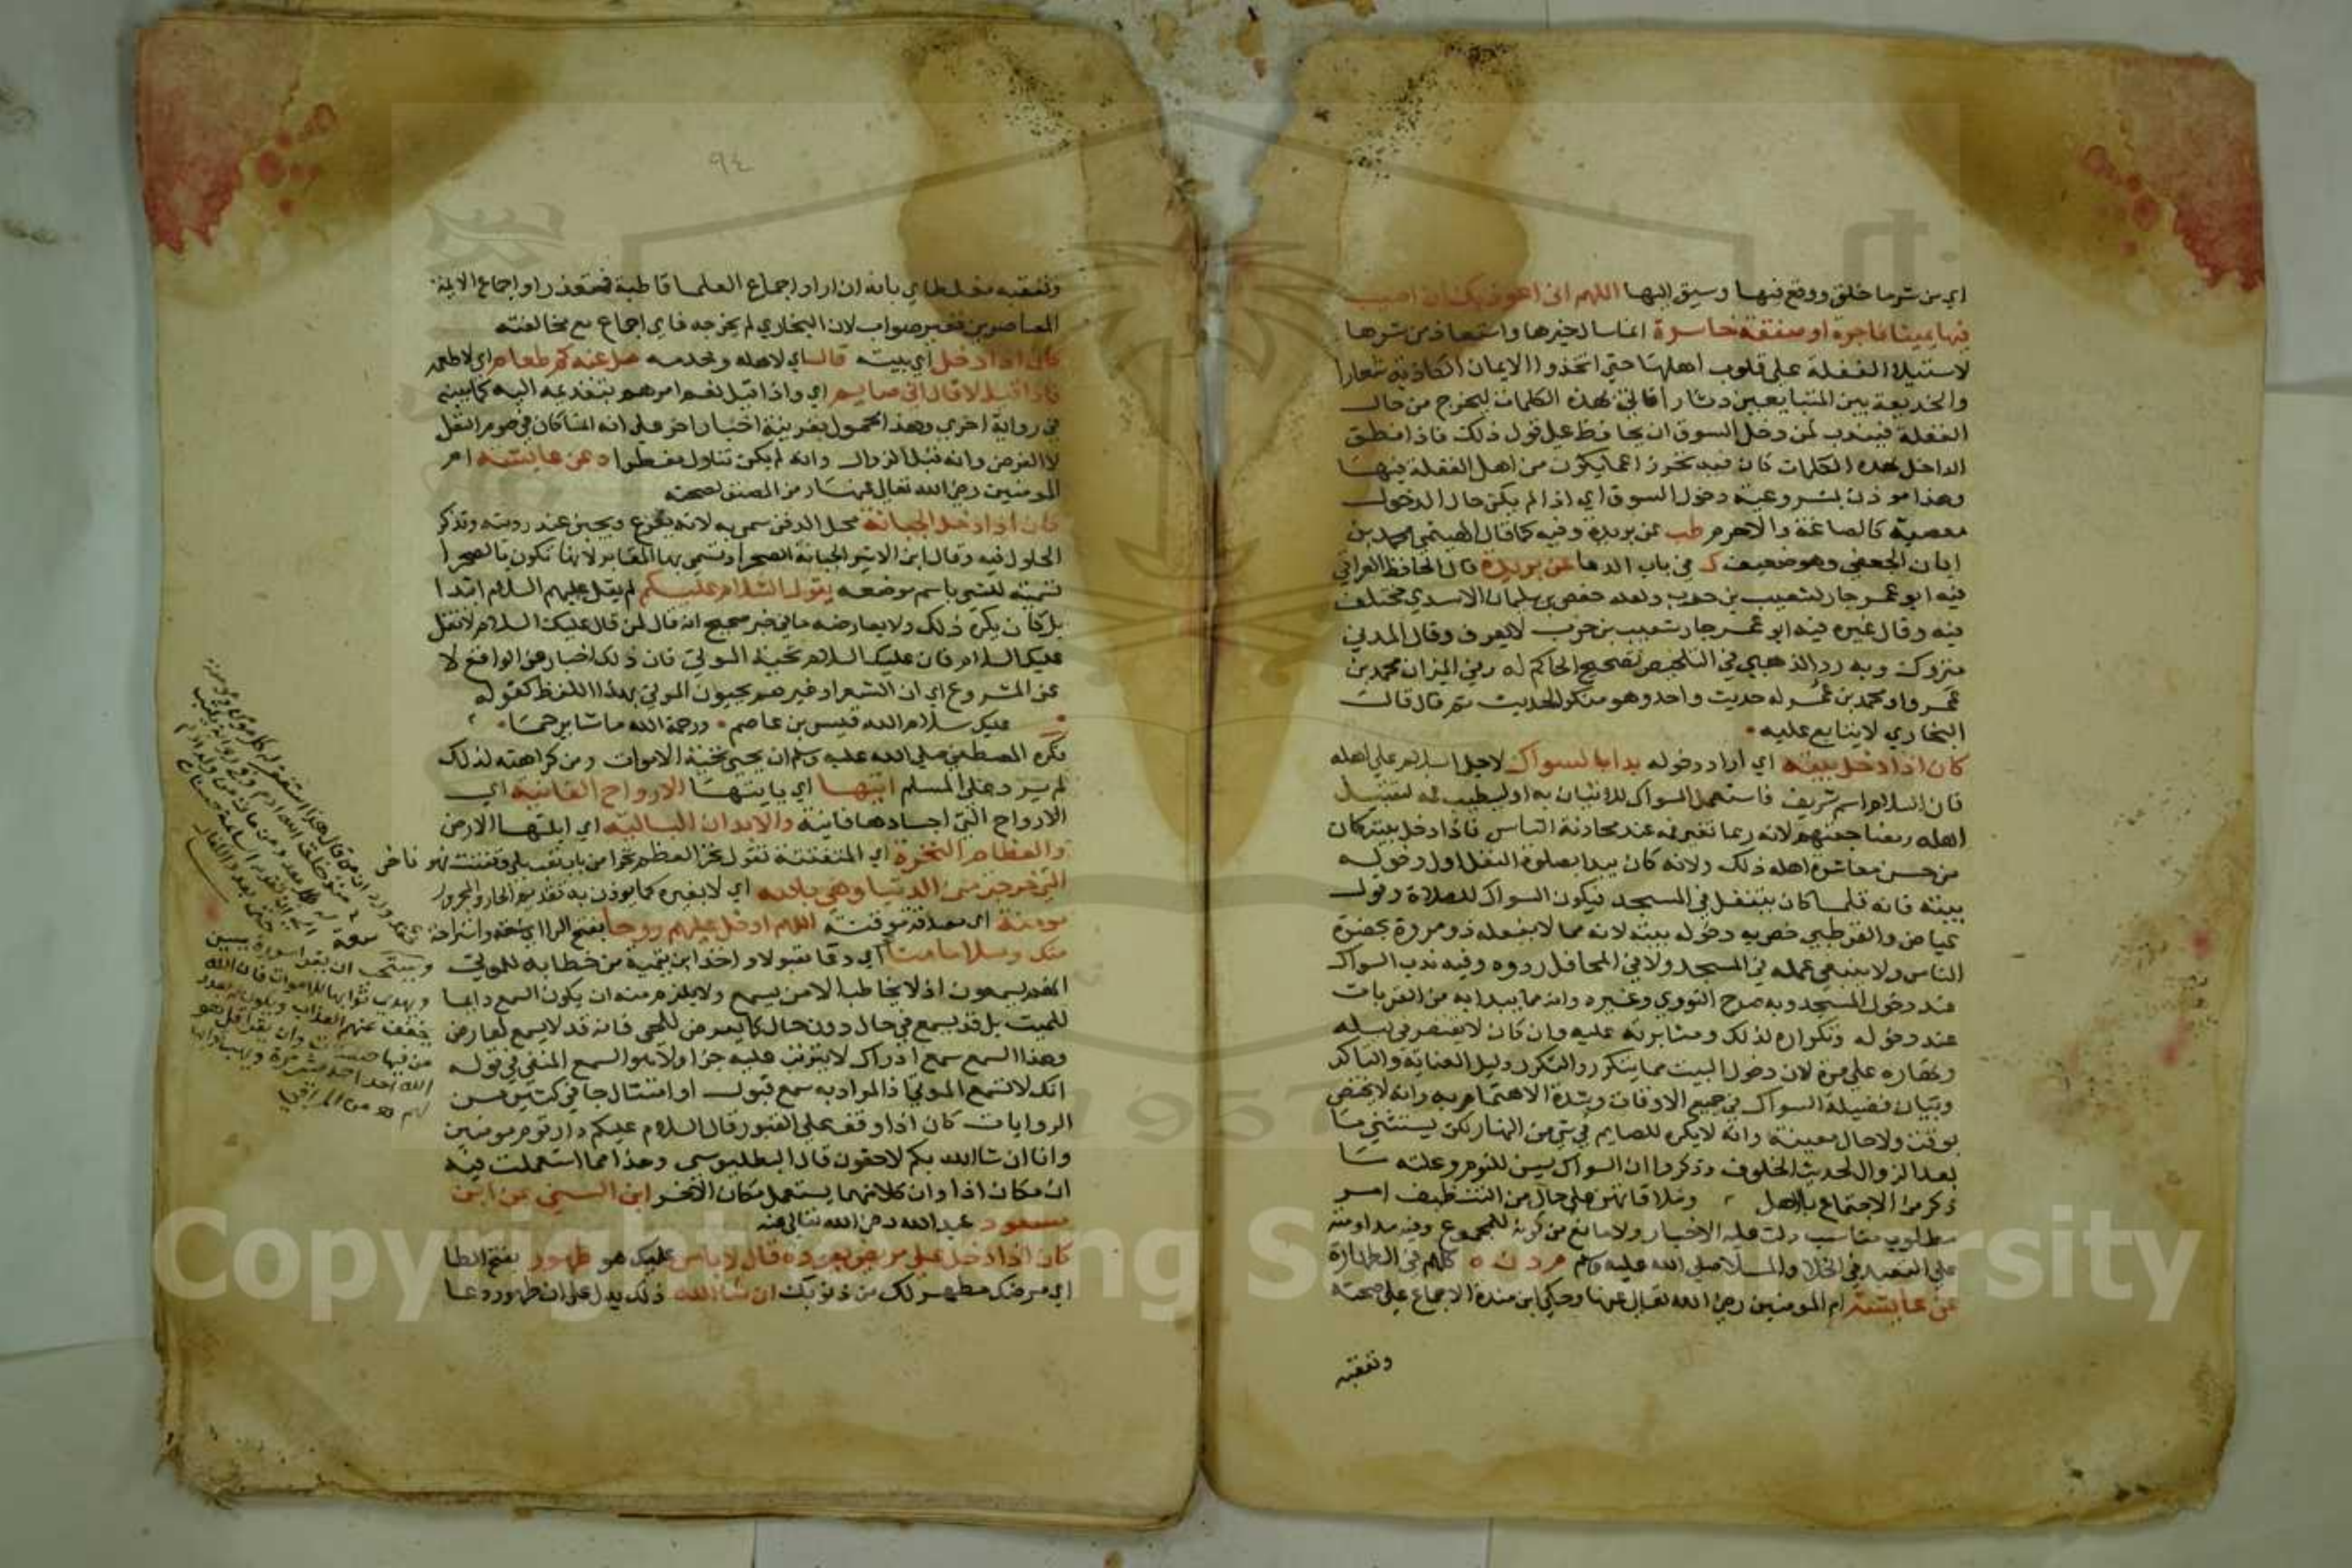 اي من شر ما خلق ووقع فيها وسيق اليها اللهم اني اعوذ بك ان اصيب
فيها يمينا فاجرة او صفقة خاسرة انما سال خيرها واستعاذ من شرها
لاستيلا الغفلة على قلوب اهلها حتى اتخذوا الايمان الكاذبة شعارا
والخديعة بين المتبايعين دثارا فاتى بهذه الكلمات ليخرج من حال
الغفلة فيندب لمن دخل السوق ان يحافظ على قول ذلك فاذا نطق
الداخل بهذه الكلمات كان فيه تحرز عما يكون من اهل الغفلة فيها
وهذا موذن بمشروعية دخول السوق اي اذا لم يكن حال الدخول
معصية كالصاغة والاحرم طب عن بريدة وفيه كما قال الهيثمي محمد بن
ابان الجعفي وهو ضعيف ك في باب الدعا عن بريدة قال الحافظ العراقي
فيه ابو عمر جار لشعيب بن حرب ولعله حفص بن سليمان الاسدي مختلف
فيه وقال غيره فيه ابو عمر جار شعيب بن حرب لا يعرف وقال المدني
متروك وبه رد الذهبي في التلخيص تصحيح الحاكم له وفي الميزان محمد بن
عمر او محمد بن عمر له حديث واحد وهو منكر الحديث ثم قال قال
البخاري لا يتابع عليه
كان اذا دخل بيته اي اراد دخوله بدا بالسواك لاجل السلام على اهله
فان السلام اسم شريف فاستعمل السواك للاتيان به او ليطيب فمه لتقبيل
اهله ومضاجعتهم لانه ربما تغير فمه عند محادثة الناس فاذا دخل بيته كان
من حسن معاشرة اهله ذلك ولانه كان يبدا بصلوة النفل اول دخوله
بيته فانه قلما كان يتنفل في المسجد فيكون السواك للصلاة وقول
عياض والقرطبي خص به دخوله بيته لانه مما لا يفعله ذو مروة بحضرة
الناس ولا ينبغي عمله في المسجد ولا في المحافل ردوه وفيه ندب السواك
عند دخول المسجد وبه صرح النووي وغيره وانه مما يبدا به من القربات
عند دخوله وتكراره لذلك ومثابرته عليه وان كان لا يقتصر في ليله
ونهاره على مرة لان دخول البيت مما يتكرر والتكرر دليل العناية والتاكد
وبيان فضيلة السواك في جميع الاوقات وشدة الاهتمام به وانه لا يختص
بوقت ولا حال معينة وانه لا يكره للصايم في شي من النهار لكن يستثنى ما
بعد الزوال لحديث الخلوف وذكروا ان السواك يسن للنوم وعلته ما
ذكر من الاجتماع بالاهل وملاقاتهن على حال من التنظيف امر
مطلوب مناسب دلت عليه الاخبار ولا مانع من كونه للمجموع وفيه مداومته
على التعبد في الخلا والملا صلى الله عليه وسلم م د ن ه كلهم في الطهارة
عن عايشة ام المومنين رضي الله تعالى عنها وحكى ابن مندة الاجماع على صحته
وتعقبه
٩٤
وتعقبه مغلطاي بانه ان اراد اجماع العلما قاطبة فمتعذر او اجماع الايمة
المعاصرين فغير صواب لان البخاري لم يخرجه فاي اجماع مع مخالفته
كان اذا دخل اي بيته قال اي لاهله وخدمه هل عندكم طعام اي لاطعمه
فاذا قيل لا قال اني صايم اي واذا قيل نعم امرهم بتقديمه اليه كما بينه
في رواية اخرى وهذا محمول بقرينة اخبار اخر على انه انما كان في صوم النفل
لا الفرض وانه قبل الزوال وانه لم يكن تناول مفطرا د عن عايشة ام
المومنين رضي الله تعالى عنها رمز المصنف لصحته
كان اذا دخل الجبانة محل الدفن سمي به لانه يفزع ويجبن عند رويته وتذكر
الحلول فيه وقال ابن الاثير الجبانة الصحرا وتسمى بها المقابر لانها تكون بالصحرا
تسمية للشي باسم موضعه يقول السلام عليكم لم يقل عليهم السلام ابتدا
بل كان يكره ذلك ولا يعارضه ما في خبر صحيح انه قال لمن قال عليك السلام لا تقل
عليك السلام فان عليك السلام تحية الموتى فان ذلك اخبار عن الواقع لا
عن المشروع اي ان الشعرا وغيرهم يحيون الموتى بهذا اللفظ كقوله
عليك سلام الله قيس بن عاصم ورحمة الله ما شا يرحما
فكره المصطفى صلى الله عليه وسلم ان يحيي بتحية الاموات ومن كراهته لذلك
لم يرد على المسلم ايتها اي يا ايتها الارواح الفانية اي
الارواح التي اجسادها فانية والابدان البالية اي ابلتها الارض
والعظام النخرة اي المتفتتة تقول نخر العظم نخرا من باب تعب بلي وتفتت فهو ناخر
التي خرجت من الدنيا وهي بالله اي لا بغيره كما يوذن به تقديم الجار والمجرور
مومنة اي مصدقة موقنة اللهم ادخل عليهم روحا بفتح الرا اي سعة واستراحة
منك وسلاما منا اي دعا مقبولا واخذ ابن تيمية من خطابه للموتى
انهم يسمعون اذ لا يخاطب الا من يسمع ولا يلزم منه ان يكون السمع دايما
للميت بل قد يسمع في حال دون حال كما يعرض للحي فانه قد لا يسمع لعارض
وهذا السمع سمع ادراك لا يترتب عليه جزا ولا هو السمع المنفي في قوله
انك لا تسمع الموتى اذ المراد به سمع قبول او امتثال جا في كثير من
الروايات كان اذا وقف على القبور قال السلام عليكم دار قوم مومنين
وانا ان شا الله بكم لاحقون قال البطليوسي وهذا مما استعملت فيه
ان مكان اذا وان كلا منهما يستعمل مكان الاخر ابن السني عن ابن
مسعود عبد الله رضي الله تعالى عنه
كان اذا دخل على مريض يعوده قال لا باس عليك هو طهور بفتح الطا
اي مرضك مطهر لك من ذنوبك ان شا الله ذلك يدل على ان طهور دعا
ويستحب ان يقرا سورة يسن
ويهدي ثوابها للاموات فان الله
يخفف عنهم العذاب ويكون له بعدد
من فيها حسنات وان يقرا قل هو
الله احد احد عشر مرة ويهب ثوابها